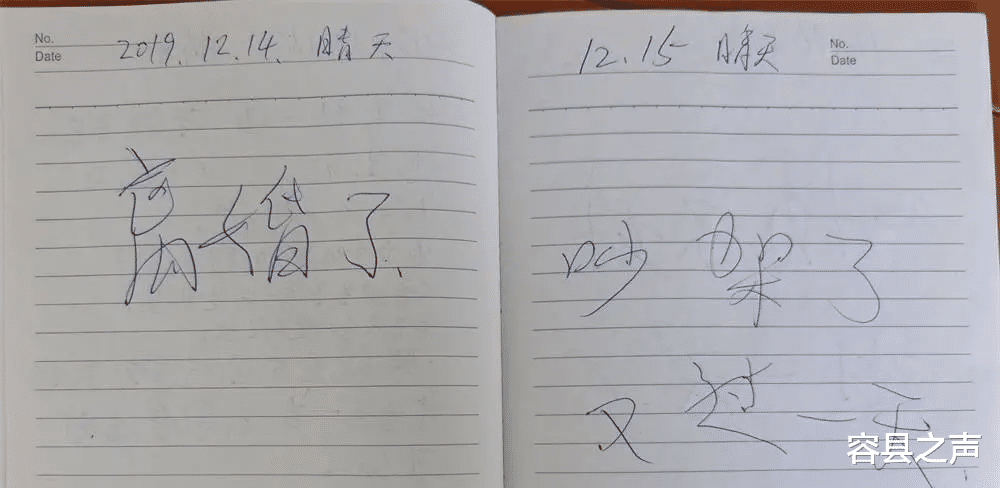 No.
Date
2019.12.14. 晴天
离婚了.
12.15 晴天
No.
Date
吵架了
又过一天
容县之声